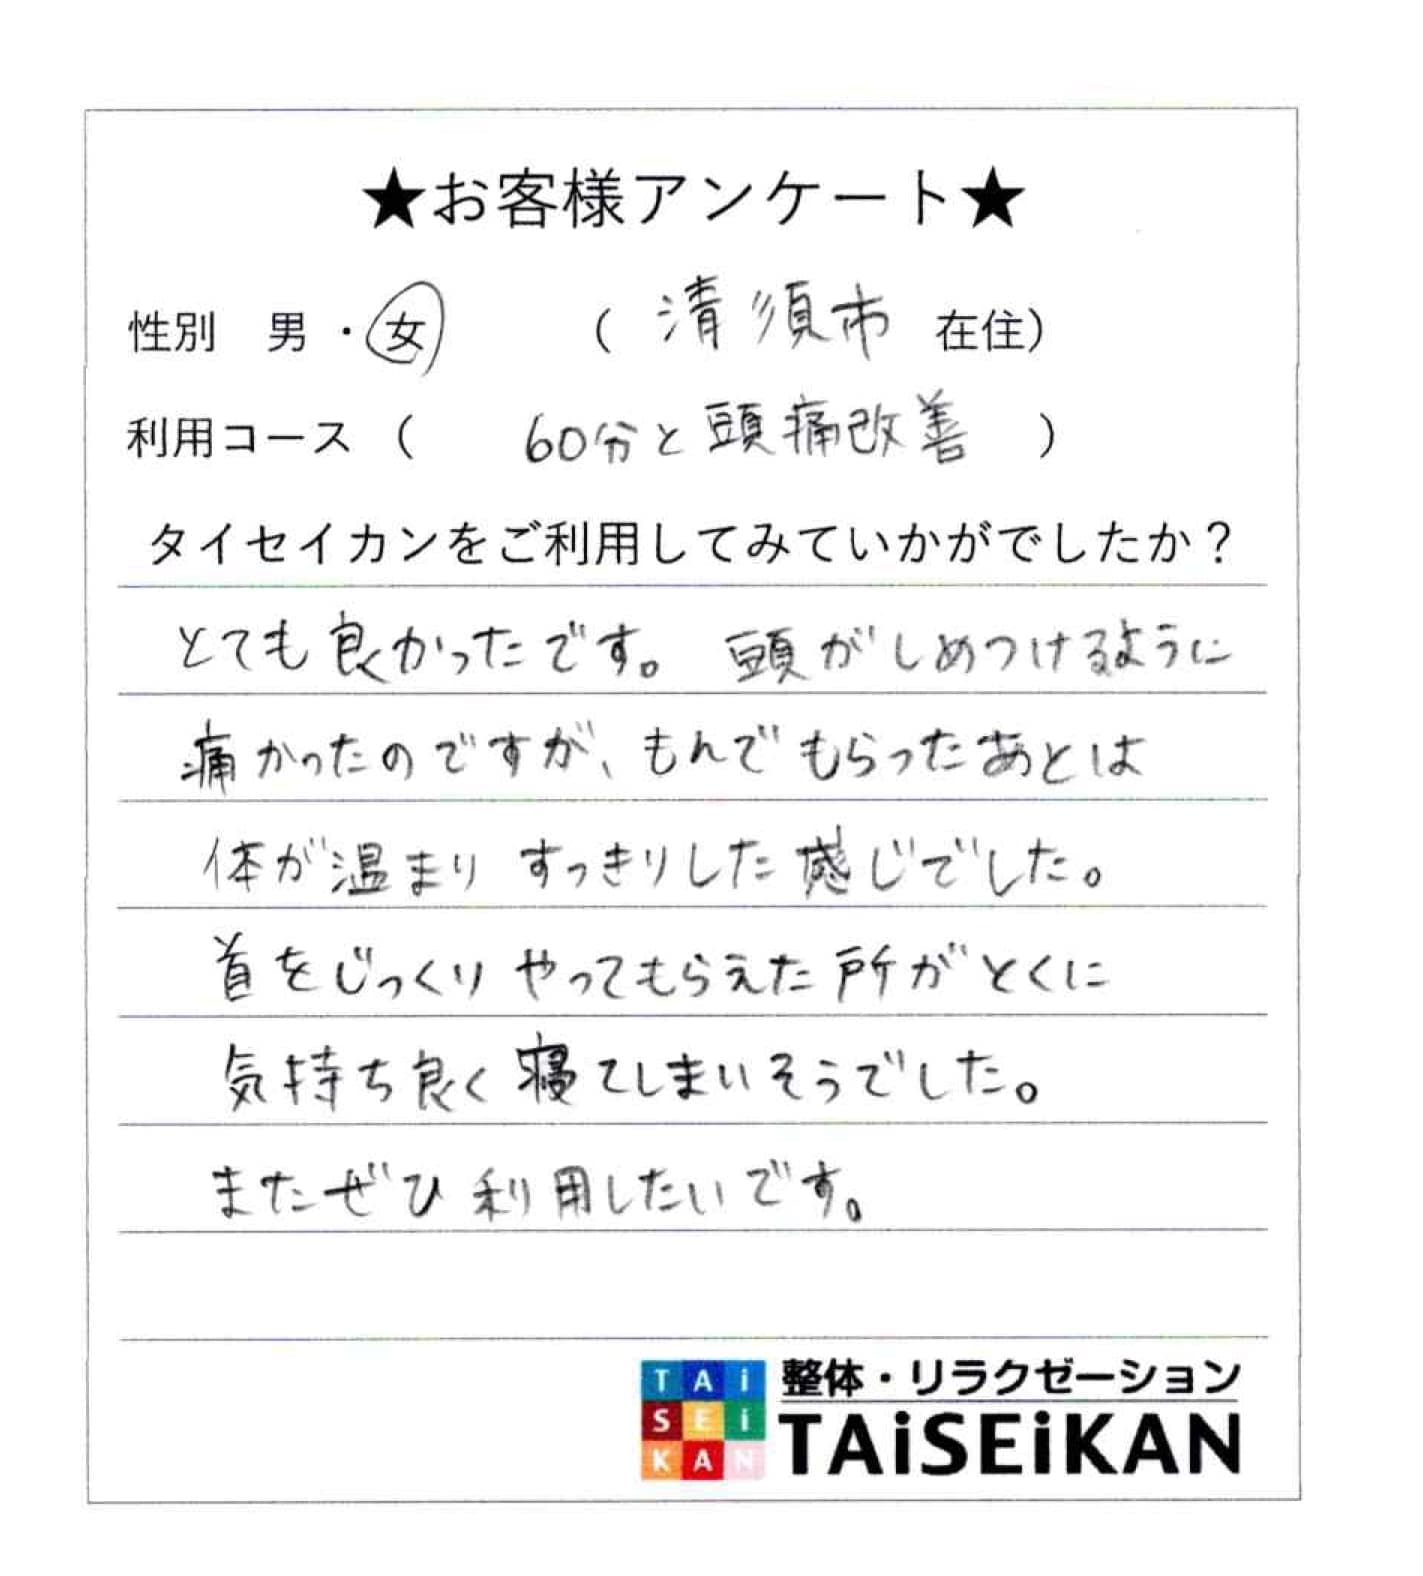 ★お客様アンケート★
性別 男・女 ( 清須市 在住)
利用コース ( 60分と頭痛改善 )
タイセイカンをご利用してみていかがでしたか？
とても良かったです。 頭がしめつけるように
痛かったのですが、もんでもらったあとは
体が温まり すっきりした感じでした。
首をじっくり やってもらえた所がとくに
気持ち良く寝てしまいそうでした。
またぜひ利用したいです。
TAi
SEi
KAN
整体・リラクゼーション
TAiSEiKAN